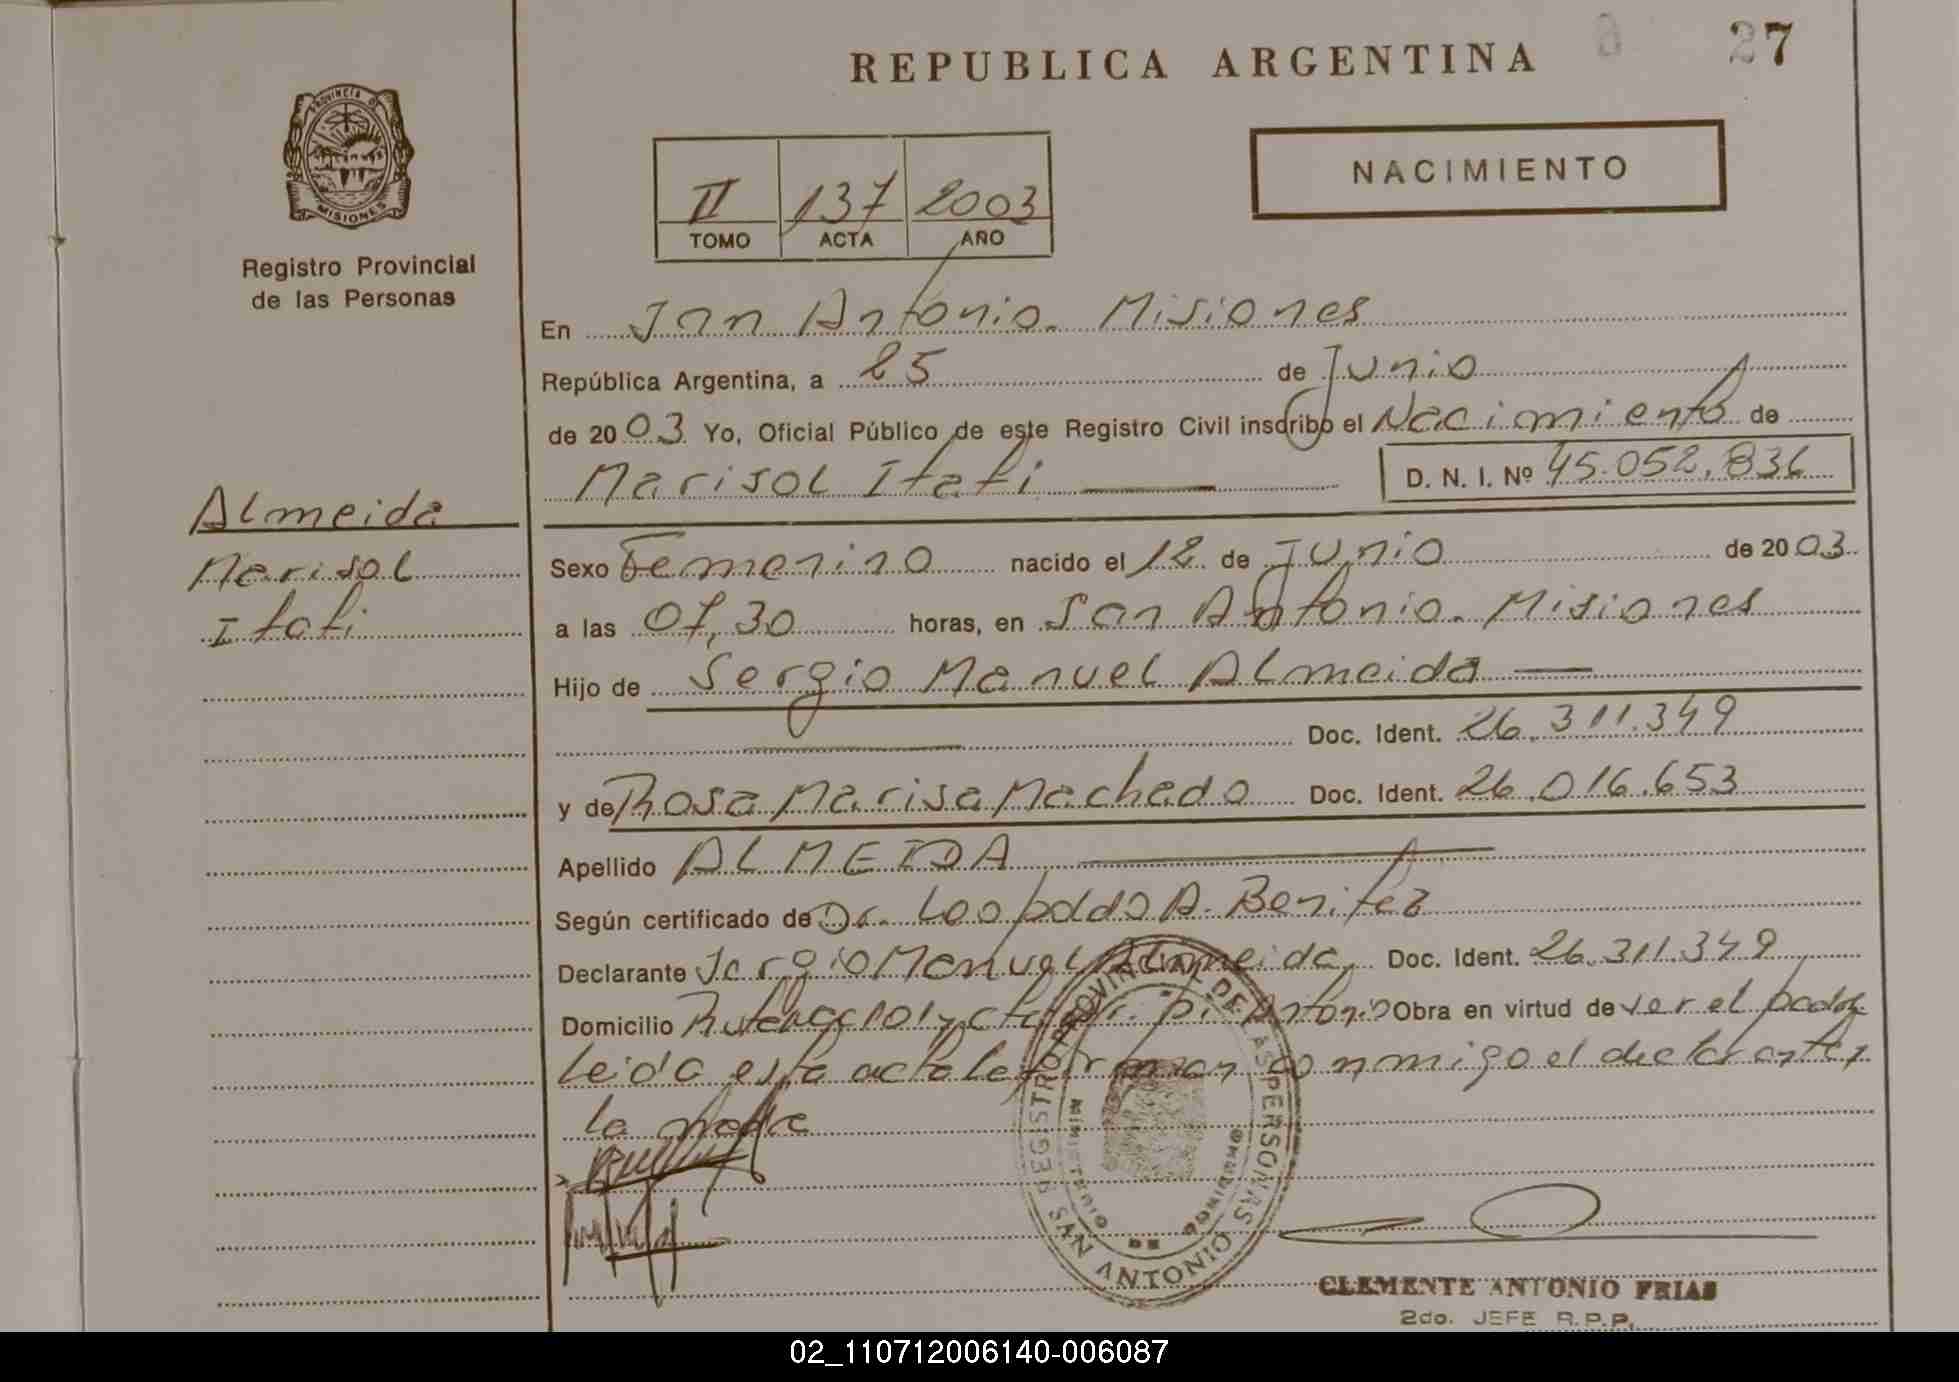 REPUBLICA ARGENTINA
27
PROVINCIA DE
MISIONES
Registro Provincial
de las Personas
NACIMIENTO
II 137 2003
TOMO ACTA AÑO
En San Antonio. Misiones
República Argentina, a 25 de Junio
de 2003 Yo, Oficial Público de este Registro Civil inscribo el Nacimiento de
Marisol Itati D. N. I. Nº 45.052.836
Almeida
Marisol
Itati
Sexo Femenino nacido el 12 de Junio de 2003
a las 07,30 horas, en San Antonio. Misiones
Hijo de Sergio Manuel Almeida
Doc. Ident. 26.311.349
y de Rosa Marisa Machado Doc. Ident. 26.016.653
Apellido ALMEIDA
Según certificado de Dr. Leopoldo A. Benitez
Declarante Sergio Manuel Almeida Doc. Ident. 26.311.349
Domicilio Ruta Obra en virtud de ser el padre
Leida esta acta la firman conmigo el declarante y
la madre
REGISTRO PROVINCIAL DE LAS PERSONAS
MINISTERIO DE GOBIERNO
SAN ANTONIO
CLEMENTE ANTONIO FRIAS
2do. JEFE R.P.P.
02_110712006140-006087